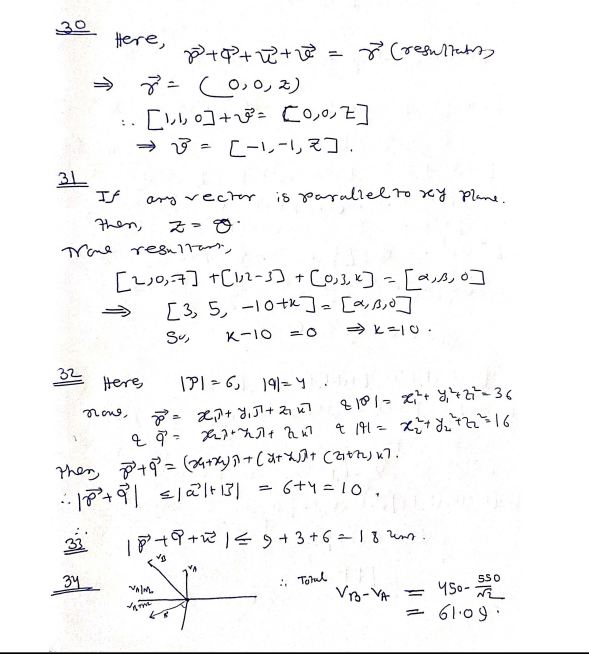 30 Here,
p⃗+q⃗+u⃗+v⃗ = r⃗ (resultant)
⇒ r⃗ = (0,0,z)
∴ [1,1,0]+v⃗ = [0,0,z]
⇒ v⃗ = [-1,-1,z].
31 If any vector is parallel to xy plane.
Then, z = 0.
Now resultant,
[2,0,-7] + [1,2-3] + [0,3,k] = [α,β,0]
⇒ [3, 5, -10+k] = [α,β,0]
So, k-10 = 0 ⇒ k=10.
32 Here, |P|=6, |q|=4
now, p⃗ = x₁i+y₁j+z₁k & |P| = x₁²+y₁²+z₁²=36
& q⃗ = x₂i+y₂j+z₂k & |q| = x₂²+y₂²+z₂²=16
Then, p⃗+q⃗ = (x₁+x₂)i+(y₁+y₂)j+(z₁+z₂)k.
∴ |p⃗+q⃗| ≤ |a⃗|+|b⃗| = 6+4=10.
33 ∴ |p⃗+q⃗+u⃗| ≤ 9+3+6=18
34 V_B V_A
∴ Total V_B-V_A = 450-550/√2
= 61.09.